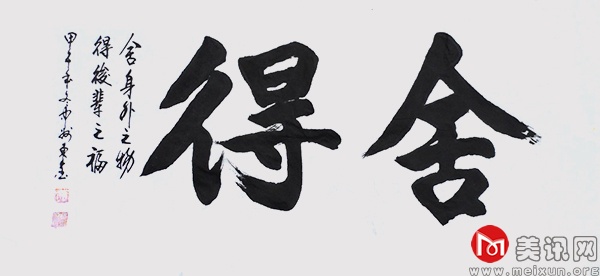 舍得
舍身外之物
得後輩之福
甲午
美讯网
www.meixun.org